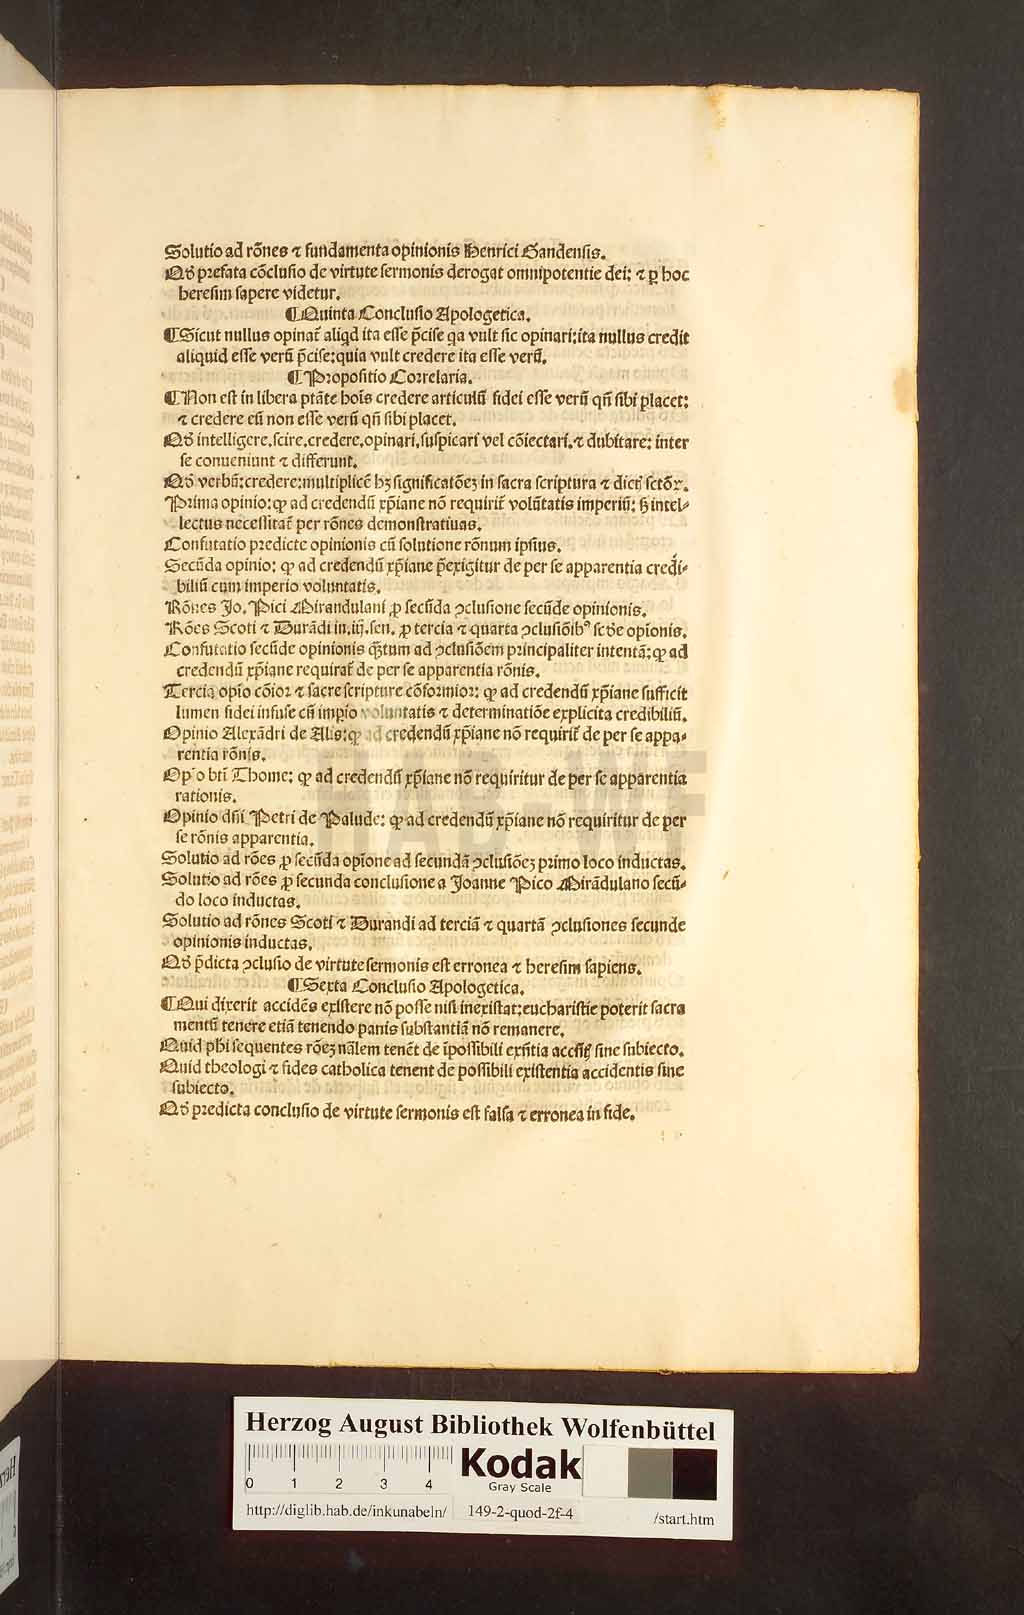 Solutio ad rōnes ⁊ fundamenta opinionis Henrici Gandensis.
Qđ prefata cōclusio de virtute sermonis derogat omnipotentie dei: ⁊ ꝑ hoc
heresim sapere videtur.
¶ Quinta Conclusio Apologetica.
¶ Sicut nullus opinat᷑ aliqd ita esse p̄cise qa vult sic opinari: ita nullus credit
aliquid esse verū p̄cise: quia vult credere ita esse verū.
¶ Propositio Correlaria.
¶ Non est in libera ptāte hoīs credere articulū fidei esse verū qn̄ sibi placet:
⁊ credere eū non esse verū qn̄ sibi placet.
Qđ intelligere, scire, credere, opinari, suspicari vel cōiectari, ⁊ dubitare: inter
se conueniunt ⁊ differunt.
Qđ verbū: credere: multiplicē hꝫ significatōeꝫ in sacra scriptura ⁊ dictꝭ sctōꝝ.
Prima opinio: ꝙ ad credendū xp̄iane nō requirit᷑ volūtatis imperiū: sꝫ intel-
lectus necessitat᷑ per rōnes demonstratiuas.
Confutatio predicte opinionis cū solutione rōnum ipsius.
Secūda opinio: ꝙ ad credendū xp̄iane p̄exigitur de per se apparentia credi-
biliū cum imperio voluntatis.
Rōnes Jo. Pici Mirandulani ꝓ secūda ↄclusione secūde opinionis.
Rōes Scoti ⁊ Durādi in .iij. sen. ꝓ tercia ⁊ quarta ↄclusiōibꝰ scđe opīonis.
Confutatio secūde opinionis q̄tum ad ↄclusiōem principaliter intentā: ꝙ ad
credendū xp̄iane requirat᷑ de per se apparentia rōnis.
Tercia opīo cōior ⁊ sacre scripture cōformior: ꝙ ad credendū xp̄iane sufficit
lumen fidei infuse cū imp̄io voluntatis ⁊ determinatiōe explicita credibiliū.
Opinio Alexādri de Alis: ꝙ ad credendū xp̄iane nō requirit᷑ de per se appa-
rentia rōnis.
Opīo btī Thome: ꝙ ad credendū xp̄iane nō requiritur de per se apparentia
rationis.
Opinio dn̄i Petri de Palude: ꝙ ad credendū xp̄iane nō requiritur de per
se rōnis apparentia.
Solutio ad rōes ꝓ secūda opīone ad secundā ↄclusiōeꝫ primo loco inductas.
Solutio ad rōes ꝓ secunda conclusione a Joanne Pico Mirādulano secū-
do loco inductas.
Solutio ad rōnes Scoti ⁊ Durandi ad terciā ⁊ quartā ↄclusiones secunde
opinionis inductas.
Qđ p̄dicta ↄclusio de virtute sermonis est erronea ⁊ heresim sapiens.
¶ Sexta Conclusio Apologetica.
¶ Qui dixerit accidēs existere nō posse nisi inexistat: eucharistie poterit sacra
mentū tenere etiā tenendo panis substantiā nō remanere.
Quid ph̄i sequentes rōeꝫ nālem tenēt de īpossibili exn̄tia accn̄tꝭ sine subiecto.
Quid theologi ⁊ fides catholica tenent de possibili existentia accidentis sine
subiecto.
Qđ predicta conclusio de virtute sermonis est falsa ⁊ erronea in fide.
HAB-WF
Herzog August Bibliothek Wolfenbüttel
0 1 2 3 4
Kodak
Gray Scale
http://diglib.hab.de/inkunabeln/ 149-2-quod-2f-4 /start.htm